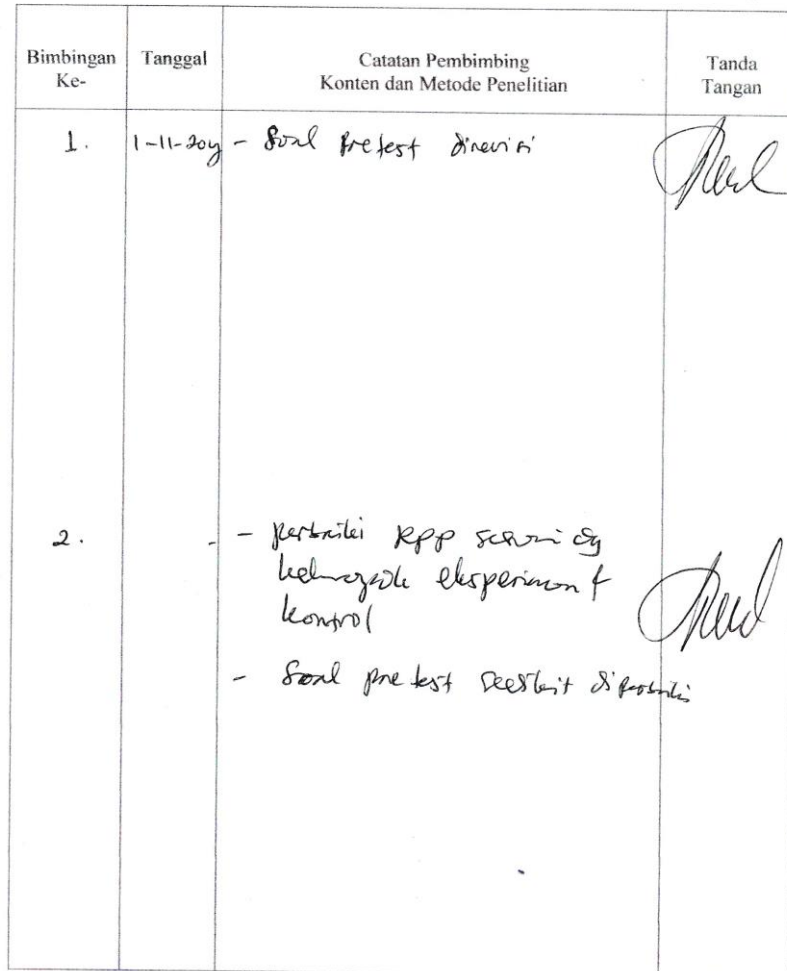 Bimbingan Ke-
Tanggal
Catatan Pembimbing
Konten dan Metode Penelitian
Tanda Tangan
1.
1-11-204
- Soal Pretest direvisi
2.
- perbaiki RPP sesuai dg
kelompok eksperimen &
kontrol
- Soal pretest sedikit diperbaiki